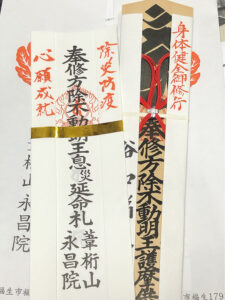 身体健全御修行
奉修方除不動明王護摩
除災防疫
奉修方除不動明王息災延命札
葦桁山
永昌院
心願成就
桁山
永昌院
福生179